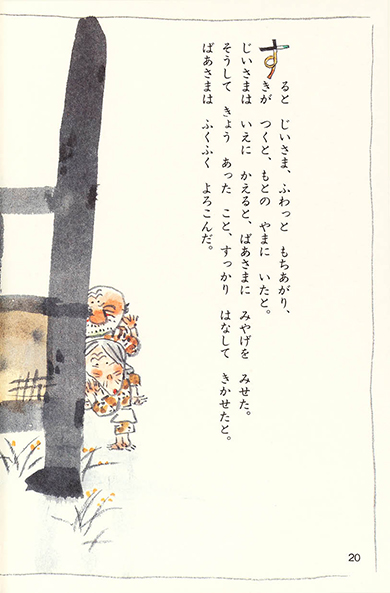 すると　じいさま、ふわっと　もちあがり、
きが　つくと、もとの　やまに　いたと。
じいさまは　いえに　かえると、ばあさまに　みやげを　みせた。
そうして　きょう　あった　こと、すっかり　はなして　きかせたと。
ばあさまは　ふくふく　よろこんだ。
20